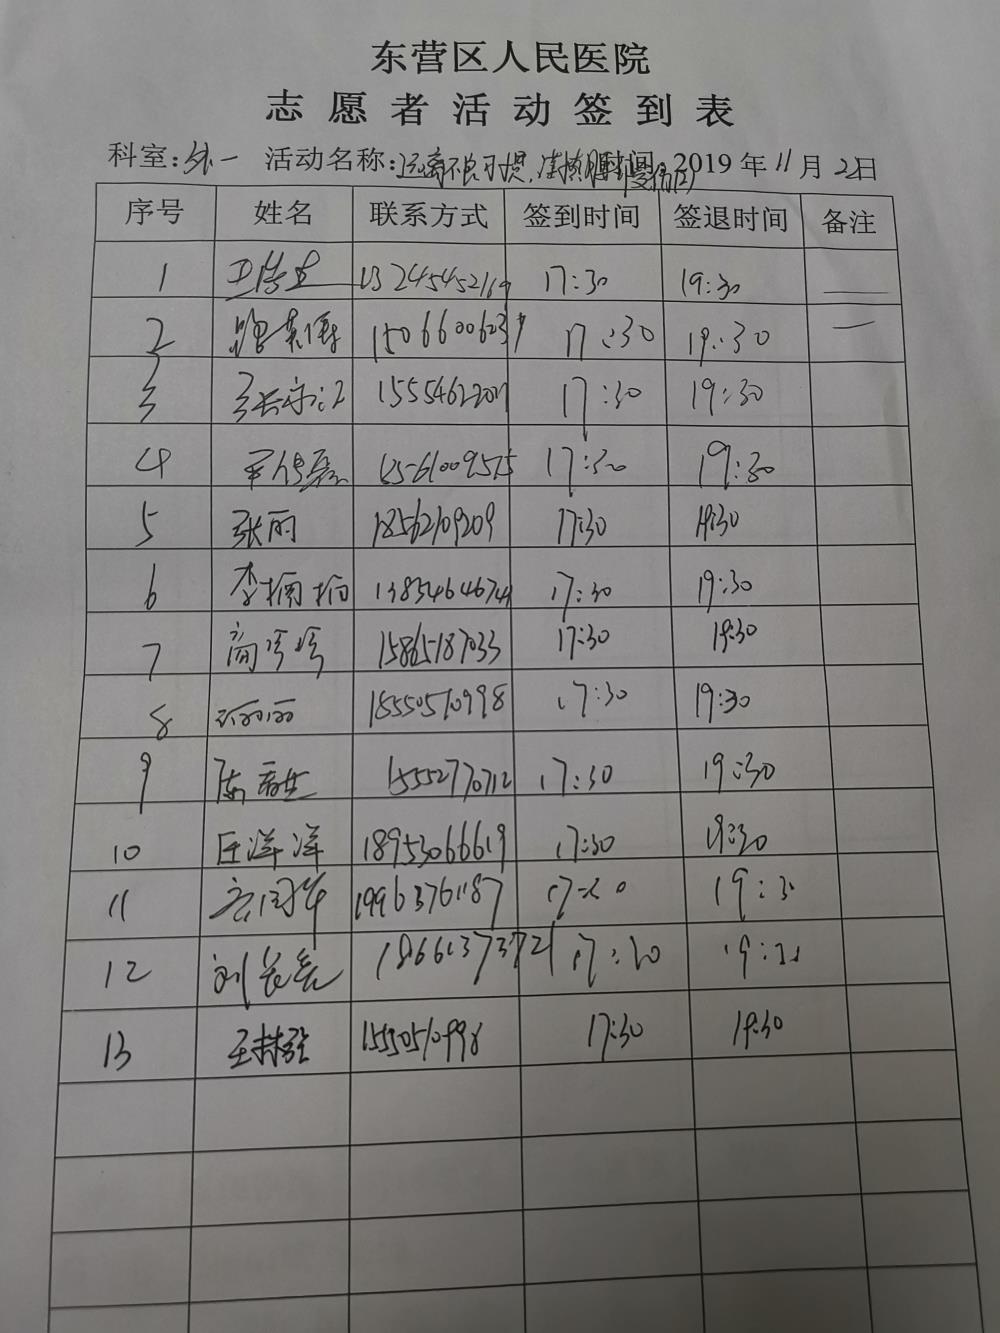 东营区人民医院
志愿者活动签到表
科室:外一 活动名称:远离不良习惯, 时间:2019年11月22日
序号 姓名 联系方式 签到时间 签退时间 备注
1 13245452169 17:30 19:30 —
2 1506600623 17:30 19:30 —
3 17:30 19:30
4 15561009575 17:30 19:30
5 张丽 18562109209 17:30 19:30
6 李楠楠 17:30 19:30
7 高珍珍 15865187033 17:30 19:30
8 18550570998 17:30 19:30
9 15552770712 17:30 19:30
10 庄洋洋 18953066619 17:30 19:30
11 19963761187 17:30 19:3
12 刘长亮 18661373721 17:30 19:30
13 15550570998 17:30 19:30